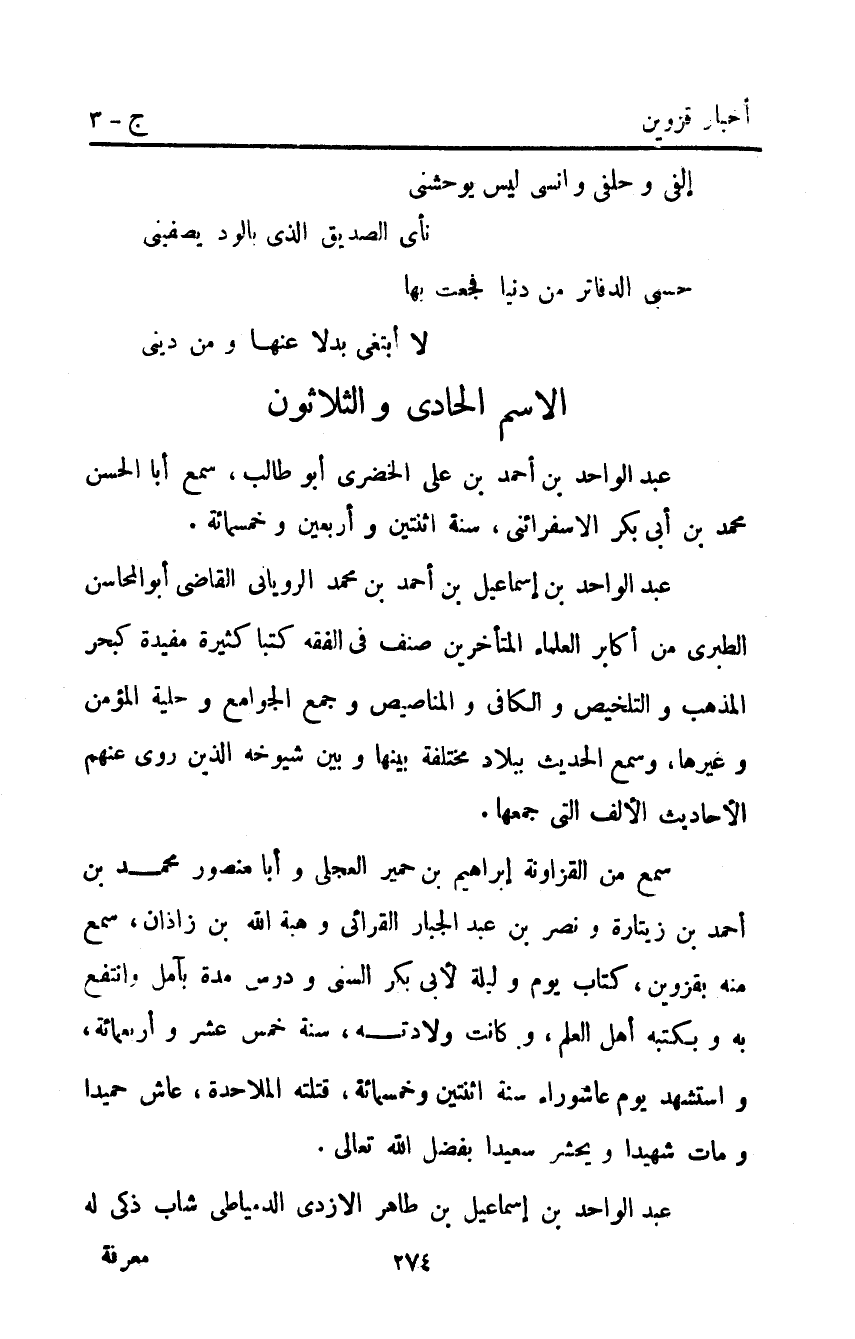 أخبار قزوين ج - ٣
إلفى و حلفى و انسى ليس يوحشنى
نأى الصديق الذى بالود يصفينى
حسبى الدفاتر من دنيا فجعت بها
لا أبتغى بدلا عنهـا و من دينى
الاسم الحادى و الثلاثون
عبد الواحد بن أحمد بن على الخضرى أبو طالب، سمع أبا الحسن
محمد بن أبى بكر الاسفرائنى، سنة اثنتين و أربعين و خمسمائة .
عبد الواحد بن إسماعيل بن أحمد بن محمد الرويانى القاضى أبوالمحاسن
الطبرى من أكابر العلماء المتأخرين صنف فى الفقه كتبا كثيرة مفيدة كبحر
المذهب و التلخيص و الكافى و المناصيص و جمع الجوامع و حلية المؤمن
و غيرها، وسمع الحديث ببلاد مختلفة بينها و بين شيوخه الذين روى عنهم
الأحاديث الألف التى جمعها.
سمع من القزاونة إبراهيم بن حمير العجلى و أبا منصور محمـــد بن
أحمد بن زيتارة و نصر بن عبد الجبار القرائى و هبة الله بن زاذان، سمع
منه بقزوين، كتاب يوم و ليلة لأبى بكر السنى و درس مدة بآمل وانتفع
به و بكتبه أهل العلم، و كانت ولادتـــه، سنة خمس عشر و أربعمائة،
و استشهد يوم عاشوراء سنة اثنتين وخمسمائة، قتلته الملاحدة، عاش حميدا
و مات شهيدا و يحشر سعيدا بفضل الله تعالى .
عبد الواحد بن إسماعيل بن طاهر الازدى الدمياطى شاب ذكى له
معرفة
٢٧٤